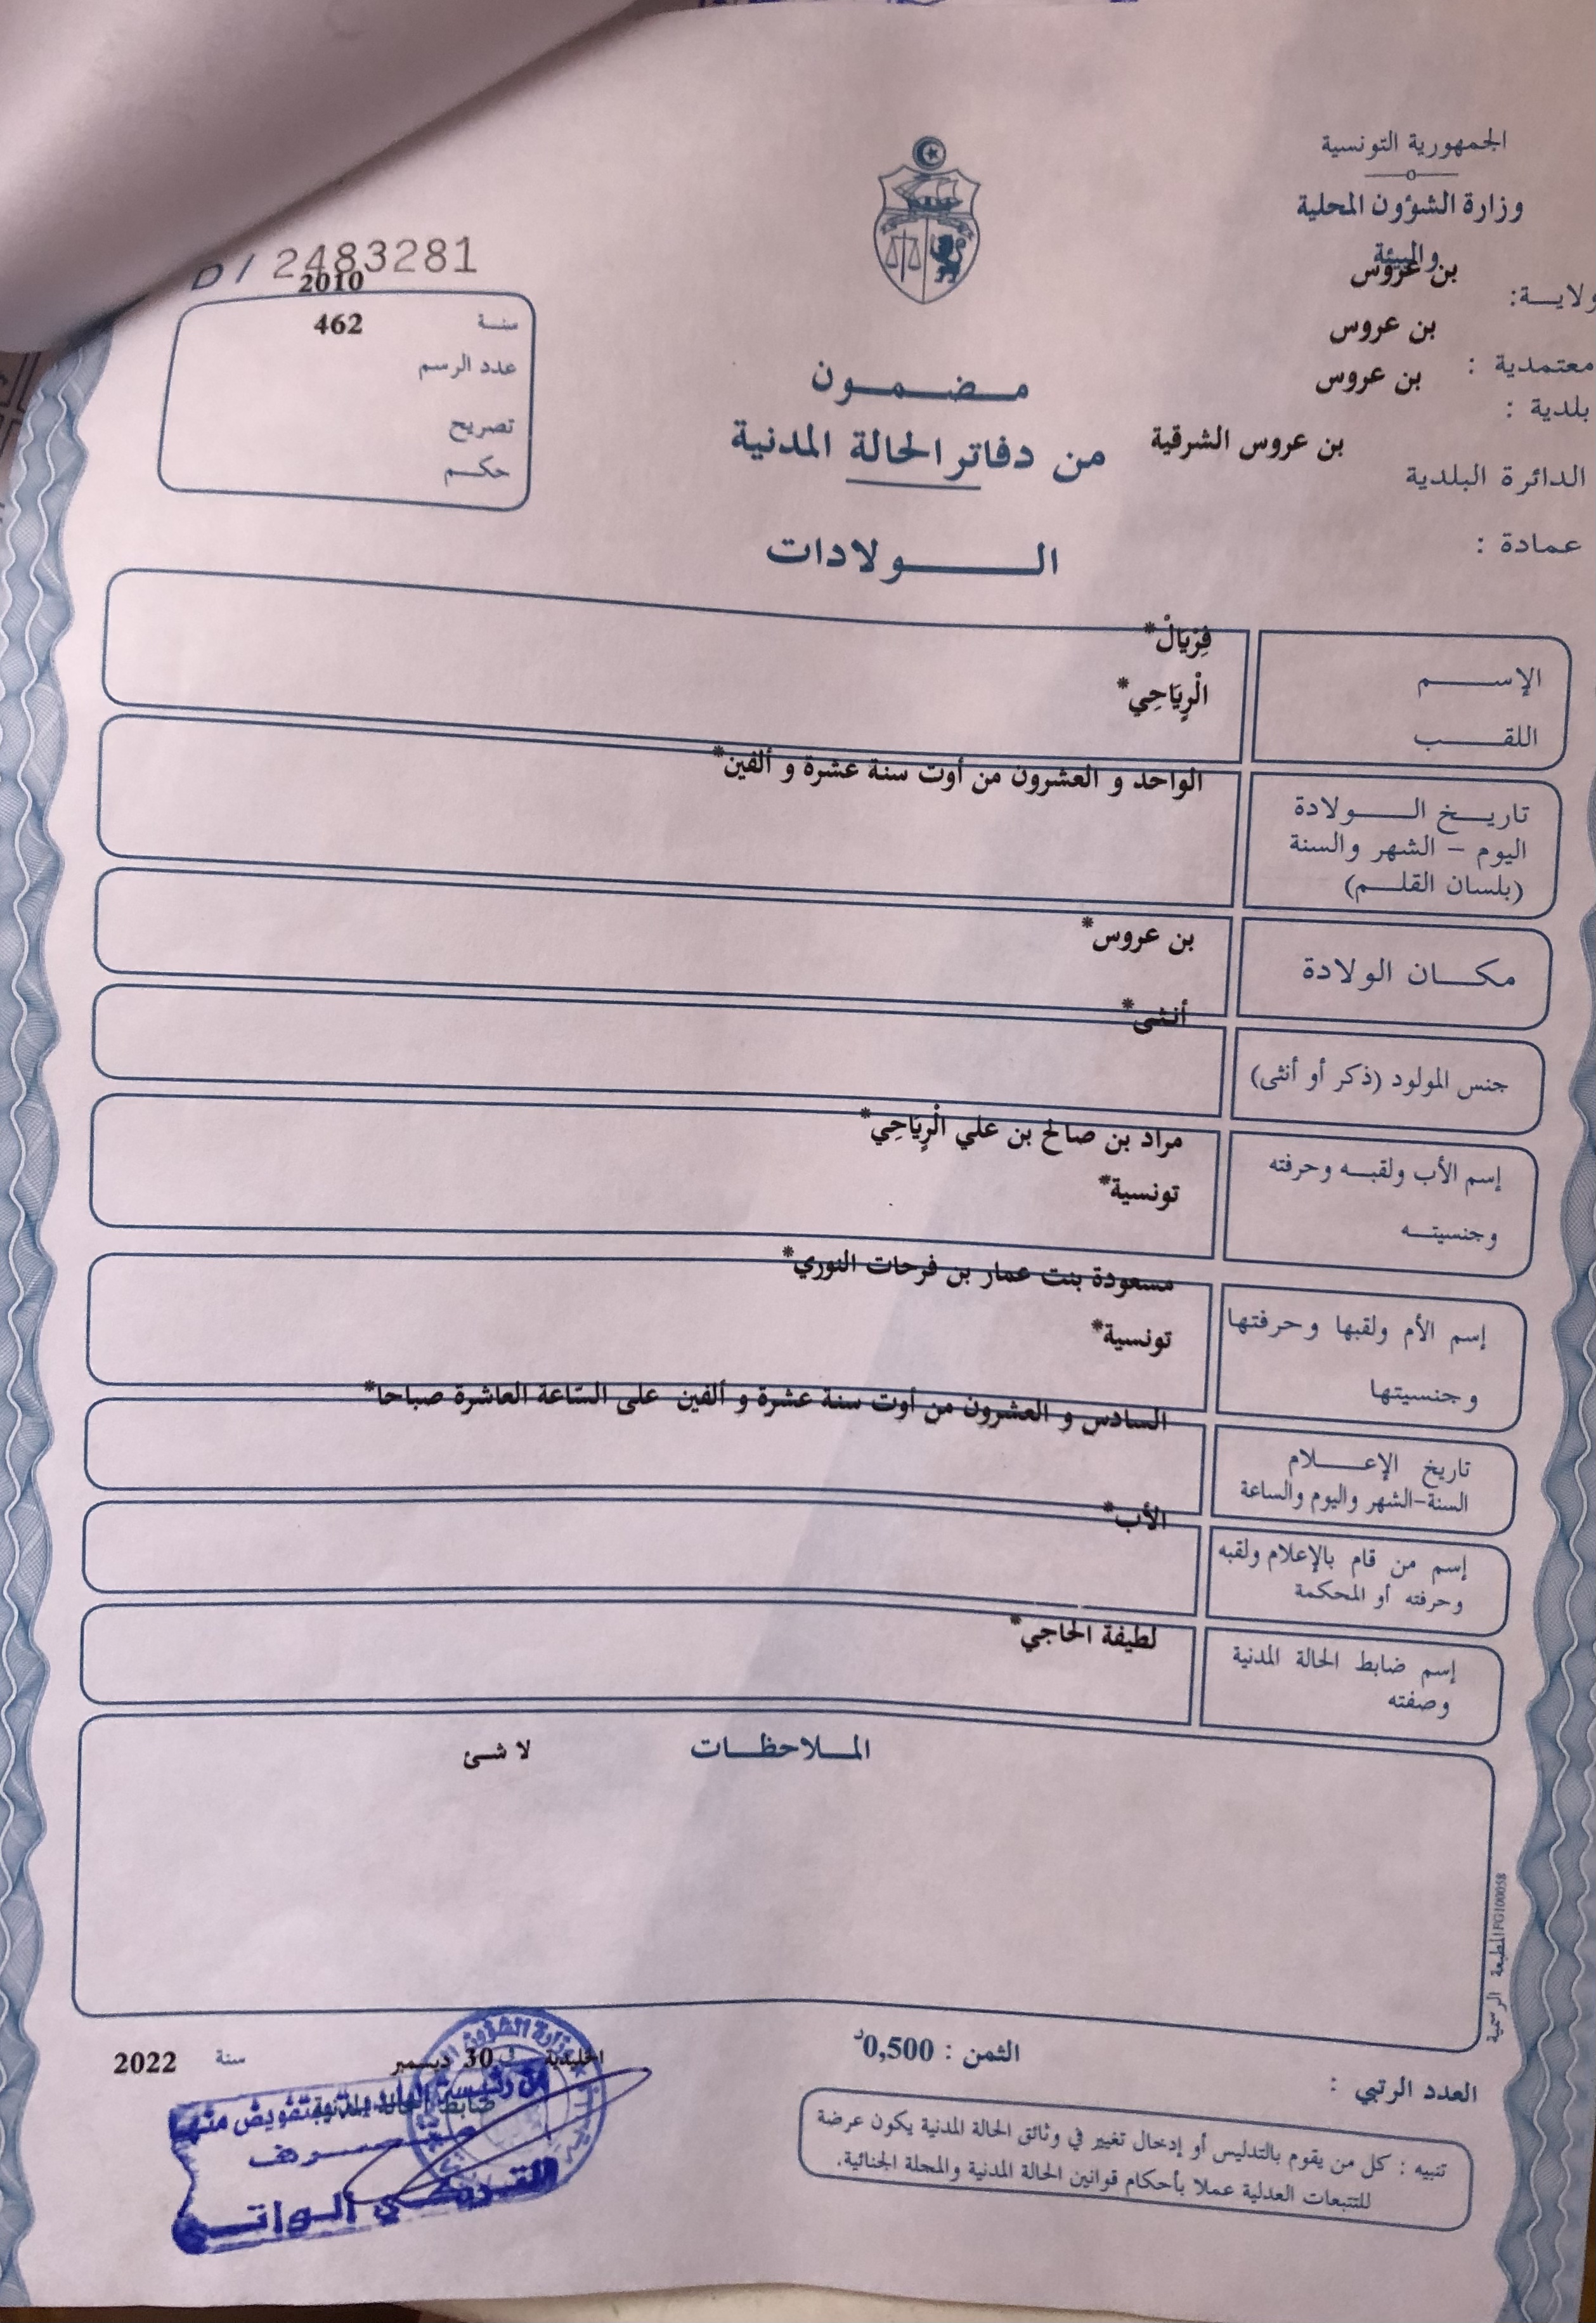 الجمهورية التونسية
وزارة الشؤون المحلية
والبيئة
ولايــة: بن عروس
معتمدية : بن عروس
بلدية : بن عروس
الدائرة البلدية بن عروس الشرقية
عمادة :
D / 2483281
سنة 2010
عدد الرسم 462
تصريح
حكم
مضمون
من دفاتر الحالة المدنية
الولادات
الإسم فِرْيَالْ*
اللقب الْرِيَاحِي*
تاريخ الولادة
اليوم – الشهر والسنة
(بلسان القلم)
الواحد و العشرون من أوت سنة عشرة و ألفين*
مكان الولادة بن عروس*
جنس المولود (ذكر أو أنثى) أنثى*
إسم الأب ولقبه وحرفته مراد بن صالح بن علي الْرِيَاحِي*
وجنسيته تونسية*
إسم الأم ولقبها وحرفتها مسعودة بنت عمار بن فرحات النوري*
وجنسيتها تونسية*
تاريخ الإعلام
السنة-الشهر واليوم والساعة
السادس و العشرون من أوت سنة عشرة و ألفين على الساعة العاشرة صباحا*
إسم من قام بالإعلام ولقبه
وحرفته أو المحكمة
الأب*
إسم ضابط الحالة المدنية
وصفته
لطيفة الحاجي*
الملاحظات لا شئ
المطبعة الرسمية PG100058
الثمن : 0,500د
العدد الرتبي :
تنبيه : كل من يقوم بالتدليس أو إدخال تغيير في وثائق الحالة المدنية يكون عرضة
للتتبعات العدلية عملا بأحكام قوانين الحالة المدنية والمجلة الجنائية.
الخليدية في 30 ديسمبر سنة 2022
ضابط الحالة المدنية